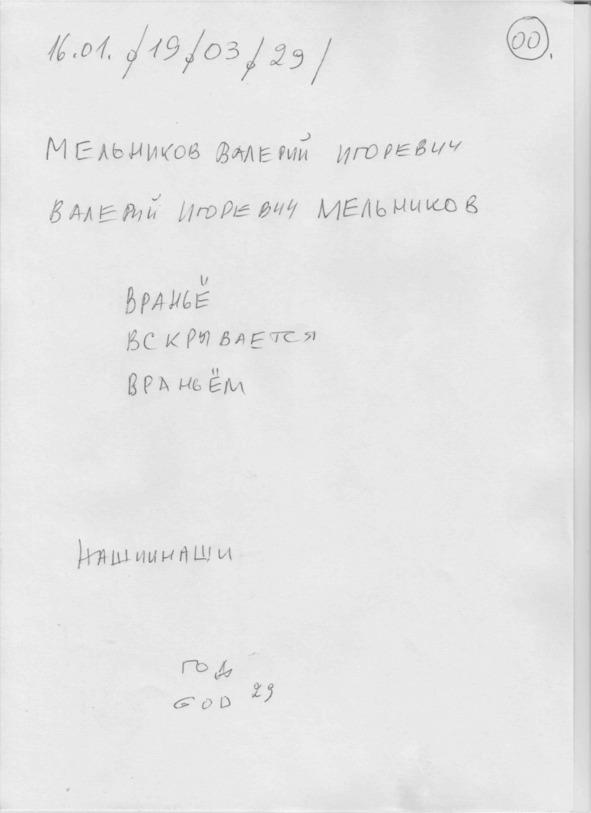 16.01. /19/03/29/
00.
МЕЛЬНИКОВ ВАЛЕРИЙ ИГОРЕВИЧ
ВАЛЕРИЙ ИГОРЕВИЧ МЕЛЬНИКОВ
ВРАНЬЁ
ВСКРЫВАЕТСЯ
ВРАНЬЁМ
НАШИИНАШИ
ГОД
GOD 29